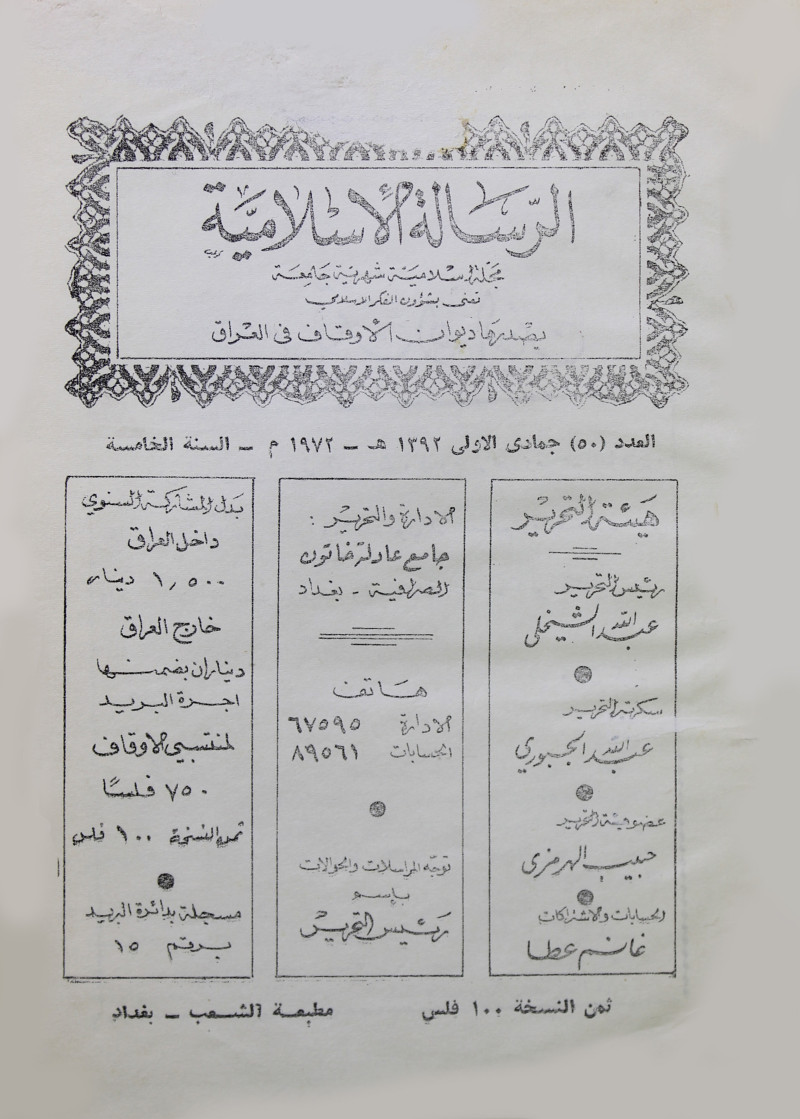 الرسالة الإسلامية
مجلة إسلامية شهرية جامعة
تعنى بشؤون الفكر الاسلامي
يصدرها ديوان الأوقاف في العراق
العدد (٥٠) جمادى الاولى ١٣٩٢ هـ - ١٩٧٢ م - السنة الخامسة
هيئة التحرير
رئيس التحرير
عبد الله الشيخلي
سكرتير التحرير
عبد الله الجبوري
عضو هيئة التحرير
حبيب الهرمزي
الحسابات والاشتراكات
غانم عطا
الادارة والتحرير :
جامع عادلة خاتون
الصرافية - بغداد
هاتف
الادارة ٦٧٥٩٥
الحسابات ٨٩٥٦١
توجه المراسلات والحوالات
بإسم
رئيس التحرير
بدل المشاركة السنوي
داخل العراق
١,٥٠٠ دينار
خارج العراق
ديناران بضمنها
اجرة البريد
لمنتسبي الاوقاف
٧٥٠ فلسًا
ثمن النسخة ١٠٠ فلس
مسجلة بدائرة البريد
برقم ١٥
ثمن النسخة ١٠٠ فلس
مطبعة الشعب - بغداد